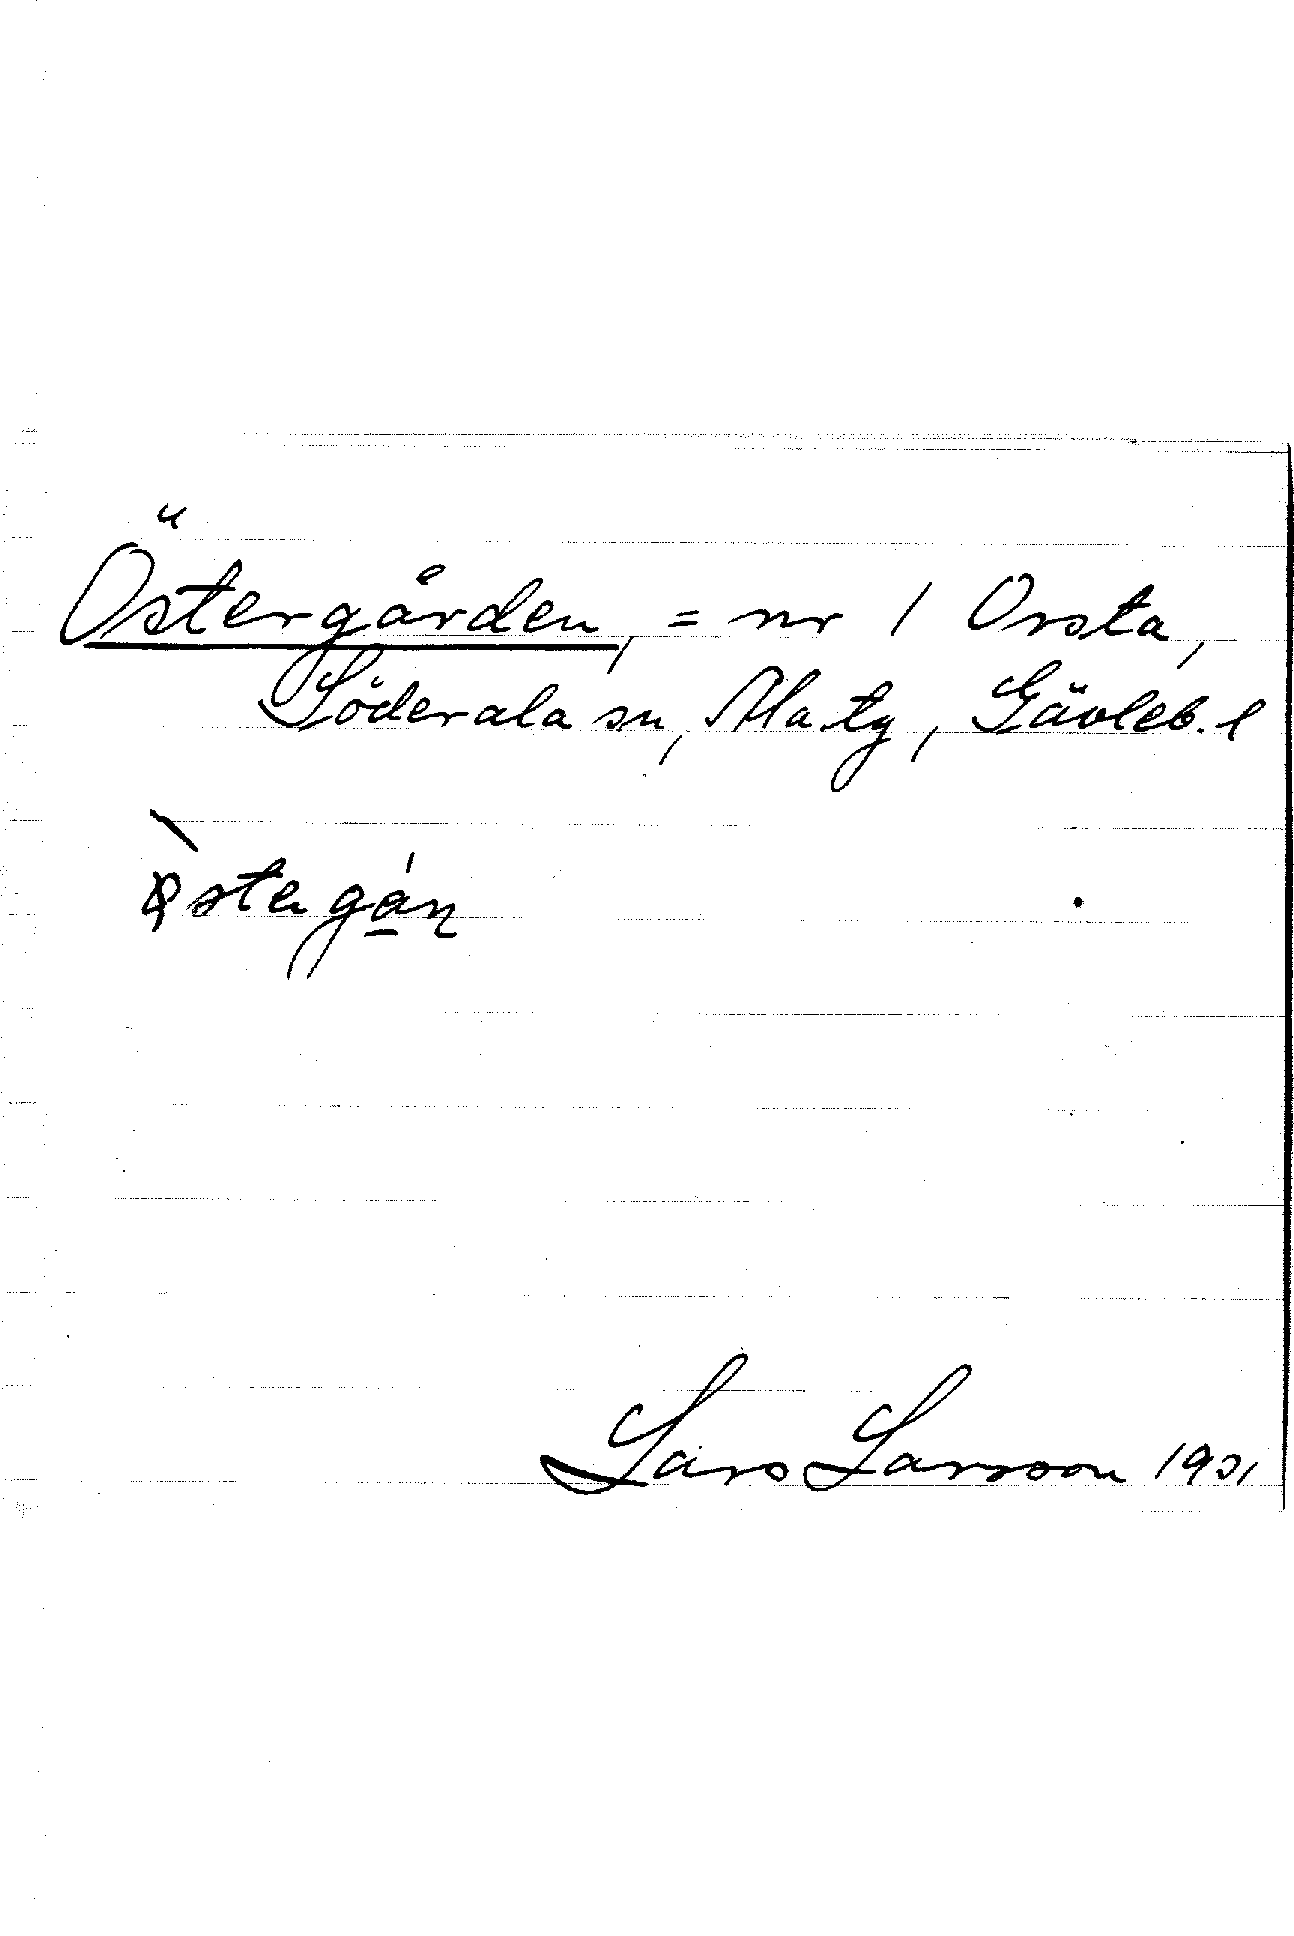 Östergården, = nr 1 Orsta,
Söderala sn, Ala tg, Gävleb. l
Lars Larsson 1931